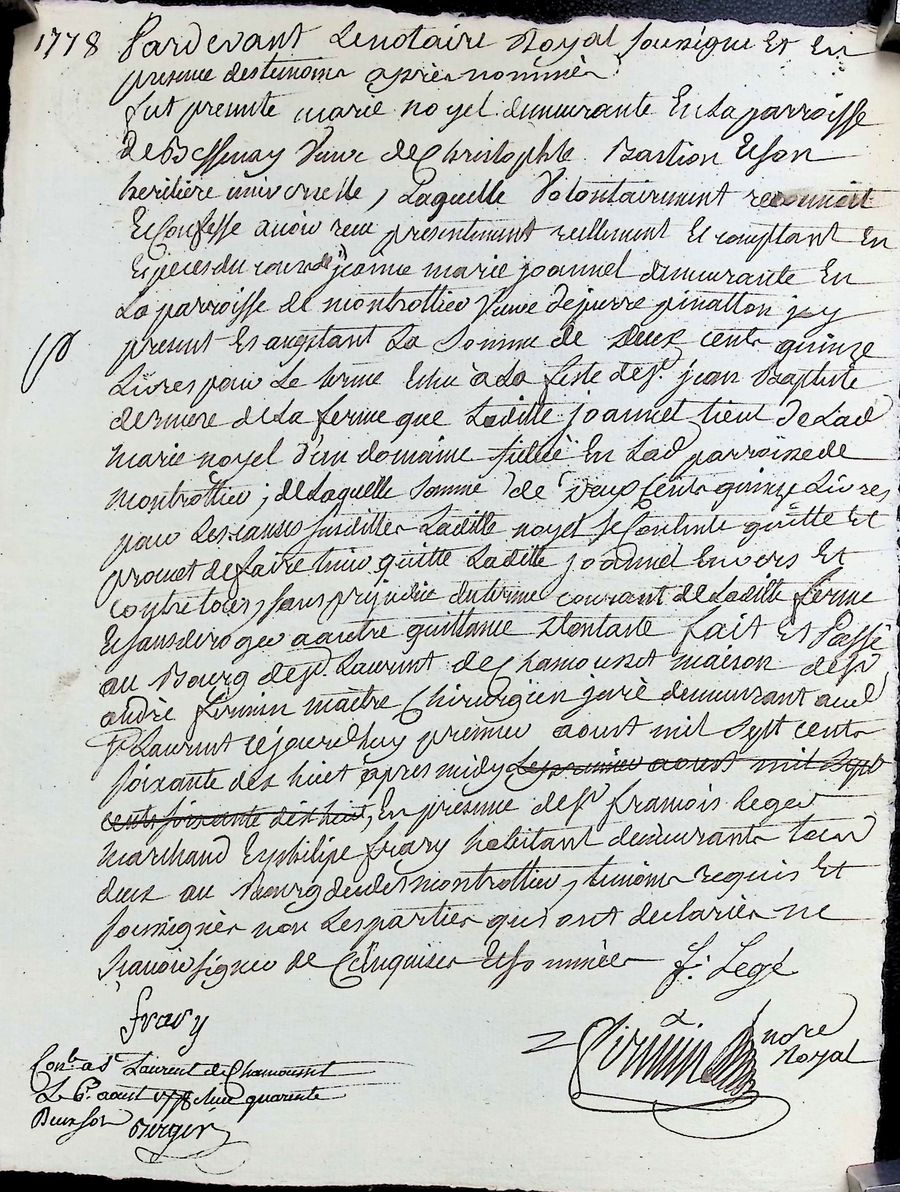 1778 Pardevant Le notaire Royal soussigné Et En
presence des temoins après nommés
fut presente marie noyel demeurante En La parroisse
de Bessenay Veuve de Christophle Bastion Et son
heritiere universelle, Laquelle Volontairement reconnoit
Et Confesse avoir reçu presentement reellement Et comptant En
Especes du cours de jeanne marie joannel demeurante En
La parroisse de montrottier Veuve de pierre pinatton jcy
present Et acceptant La Somme de Deux cents quinze
Livres pour Le terme Echu à La feste de St. jean Baptiste
derniere de La ferme que Laditte joannel tient de Lad
marie noyel d'un domaine situé En Lad parroisse de
montrottier; de Laquelle somme de deux Cents quinze Livres
pour Les causes susdittes Laditte noyel se Contente quitte Et
promet de faire tenir quitte Laditte joannel Envers Et
contre tous, sans prejudice du terme courant de Laditte ferme
Et sans deroger a autre quittance fait Et Passé
au Bourg de St. Laurent de Chamousset maison de Sr
andré firmin maitre Chirurgien juré demeurant aud
St Laurent cejourdhuy premier aoust mil sept cents
soixante dix huit apres midy Le premier aoust mil sept
cents soixante dix huit, En presence de Sr françois Leger
marchand Et philipe frary habitant demeurants tous
deux au Bourg dudit montrottier, temoins requis Et
soussignés non Les parties qui ont declarées ne
sçavoir signer de Ce Enquises Et sommées f. Legé
frary
firmin no.re
Royal
Con.lé a St Laurent de Chamousset
Le 6e. aout 1778 Reçu quarente
Deux sols Berger